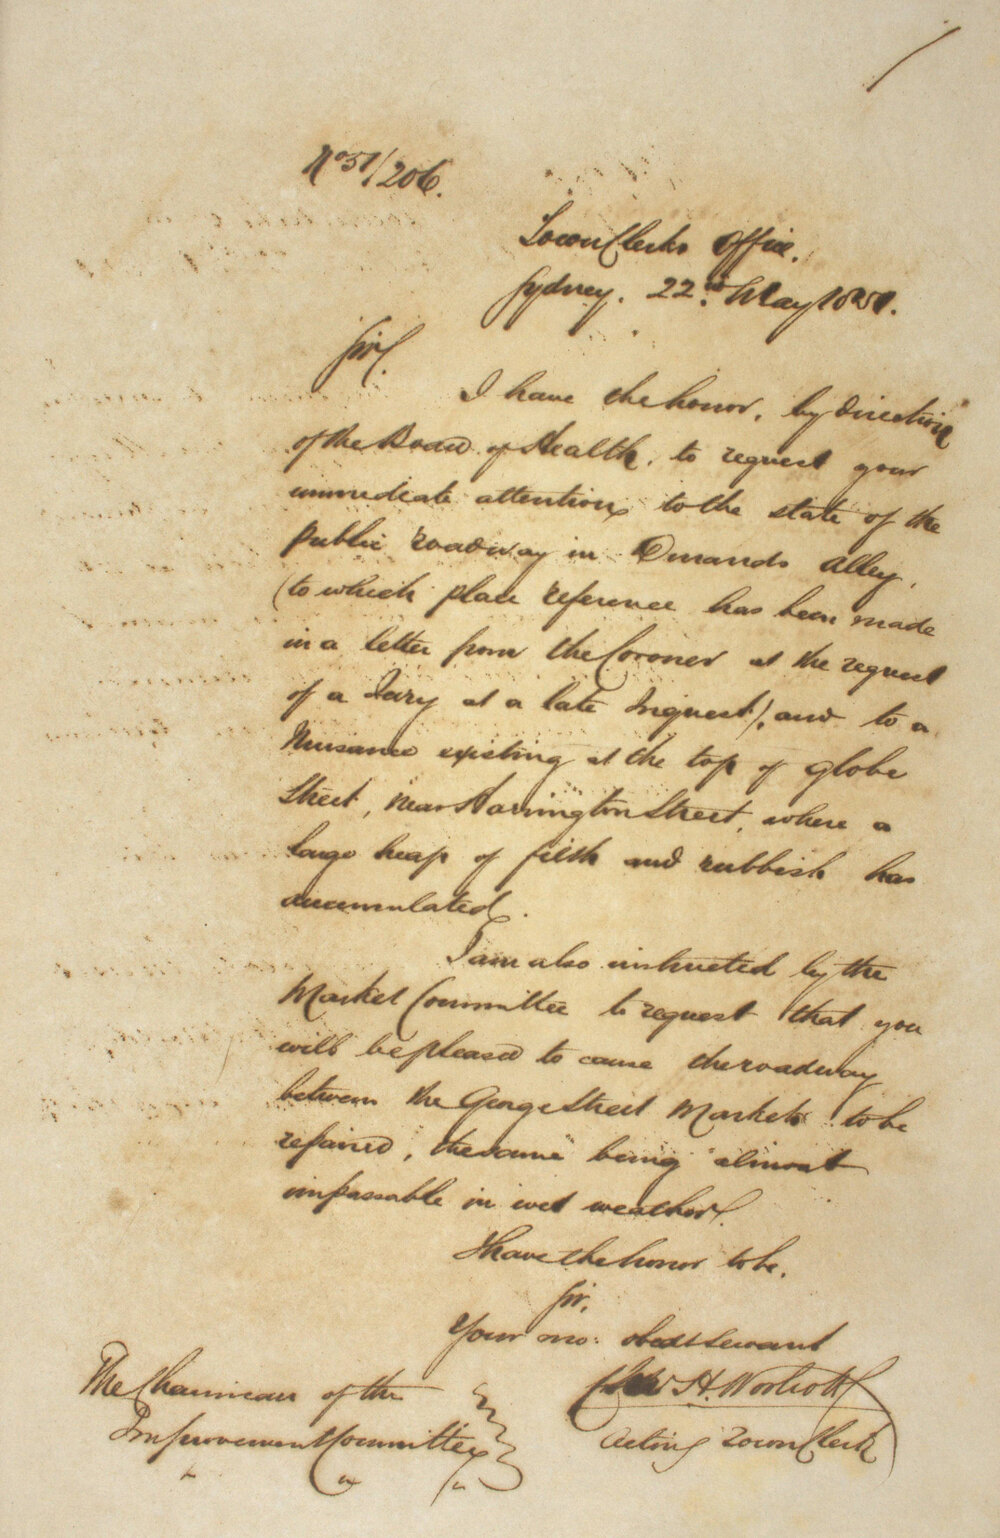 No 51/206.
Town Clerks Office.
Sydney. 22nd May 1851.
Sir,
I have the honor, by direction
of the Board of Health, to request your
immediate attention to the state of the
public roadway in Durands Alley,
(to which place reference has been made
in a letter from the Coroner at the request
of a Jury at a late Inquest), and to a
Nuisance existing at the top of Globe
Street, near Harrington Street, where a
large heap of filth and rubbish has
accumulated.
I am also instructed by the
Market Committee to request that you
will be pleased to cause the roadway
between the George Street Markets to be
repaired, the same being almost
impassable in wet weather.
I have the honor to be,
Sir,
Your mo: obedt servant
Chas H. Woolcott
Acting Town Clerk
The Chairman of the
Improvement Committee